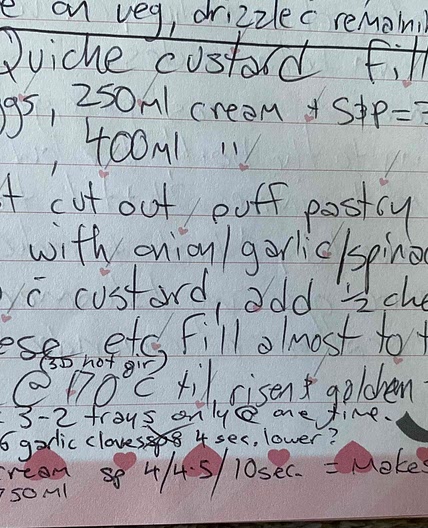 e on veg, drizzle c̄ remaini
Quiche custard fill
ggs, 250ml cream + S&P=
, 400ml "
t cut out puff pastry
with onion/garlic/spina
c̄ custard, add ½ che
ese etc, fill almost to t
(3D hot air)
@ 170°C til risen & golden
3-2 trays only @ one time.
6 garlic cloves sp8 4 sec. lower?
ream sp 4/4.5/10sec. = Makes
750ml